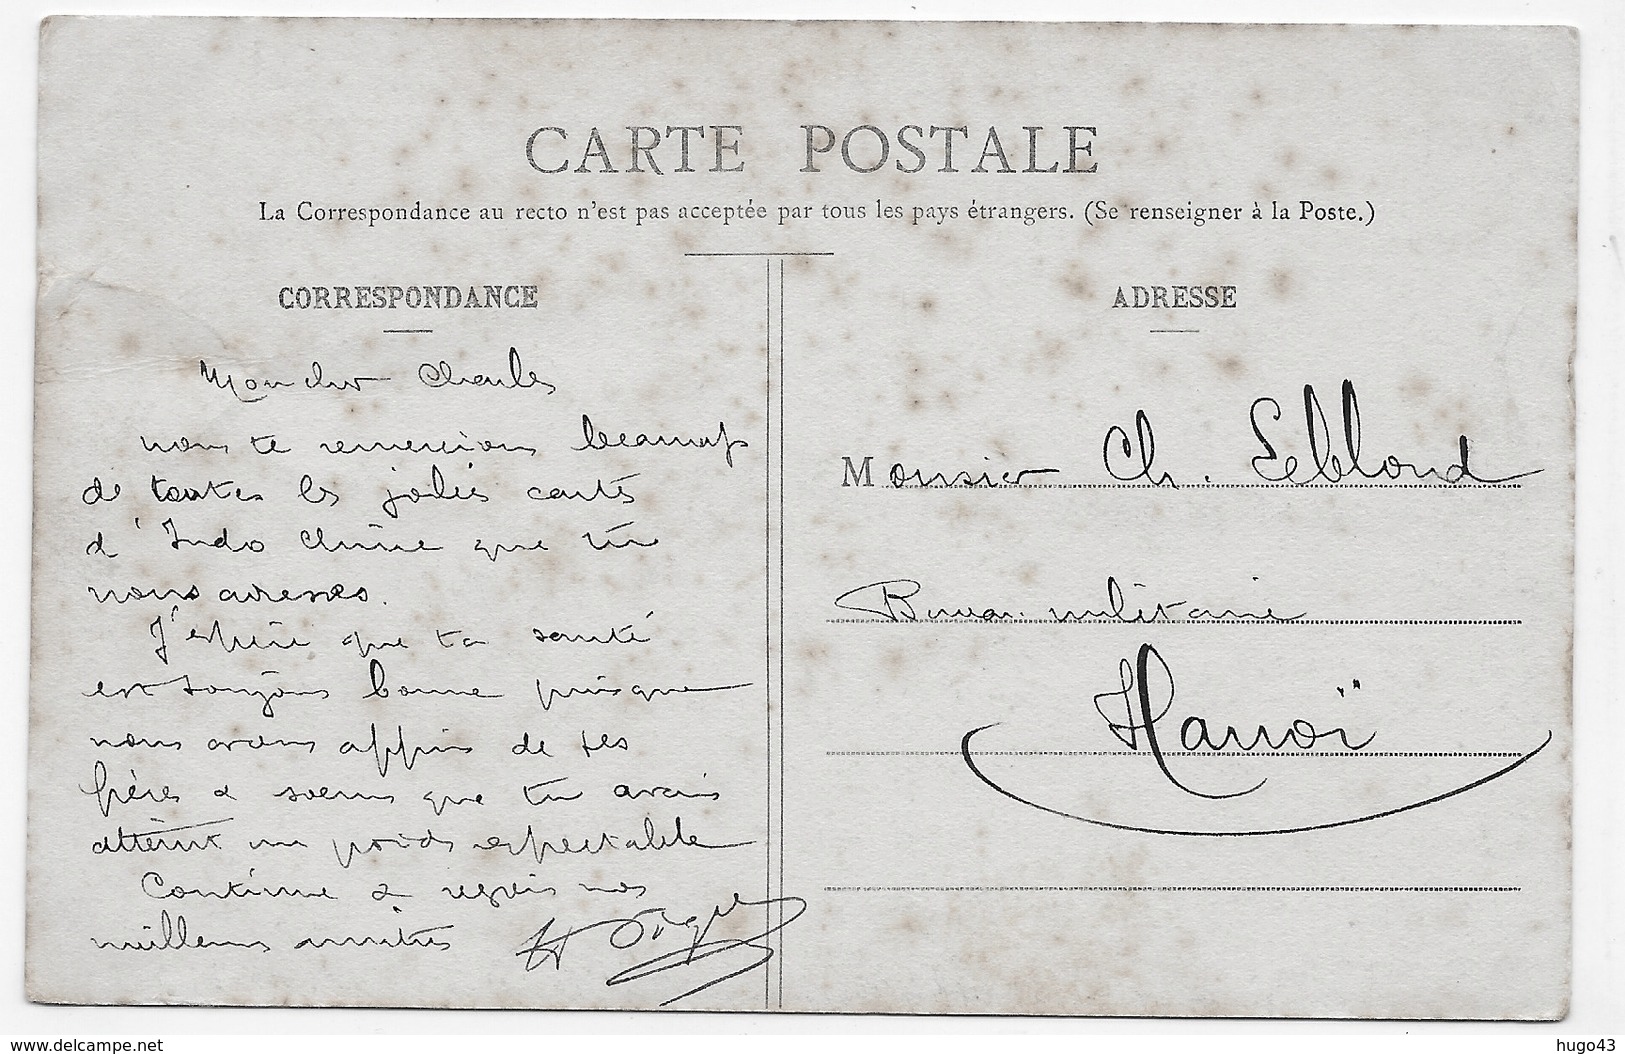 CARTE POSTALE
La Correspondance au recto n'est pas acceptée par tous les pays étrangers. (Se renseigner à la Poste.)
CORRESPONDANCE
Mon cher Charles
nous te remercions beaucoup
de toutes les jolies cartes
d'Indo Chine que tu
nous adresses.
J'espère que ta santé
est toujours bonne puisque
nous avons appris de tes
frères & soeurs que tu avais
atteint un poids respectable
Continue & reçois nos
meilleures amitiés
ADRESSE
Monsieur Ch. Leblond
Bureau militaire
Hanoï
www.delcampe.net
hugo43